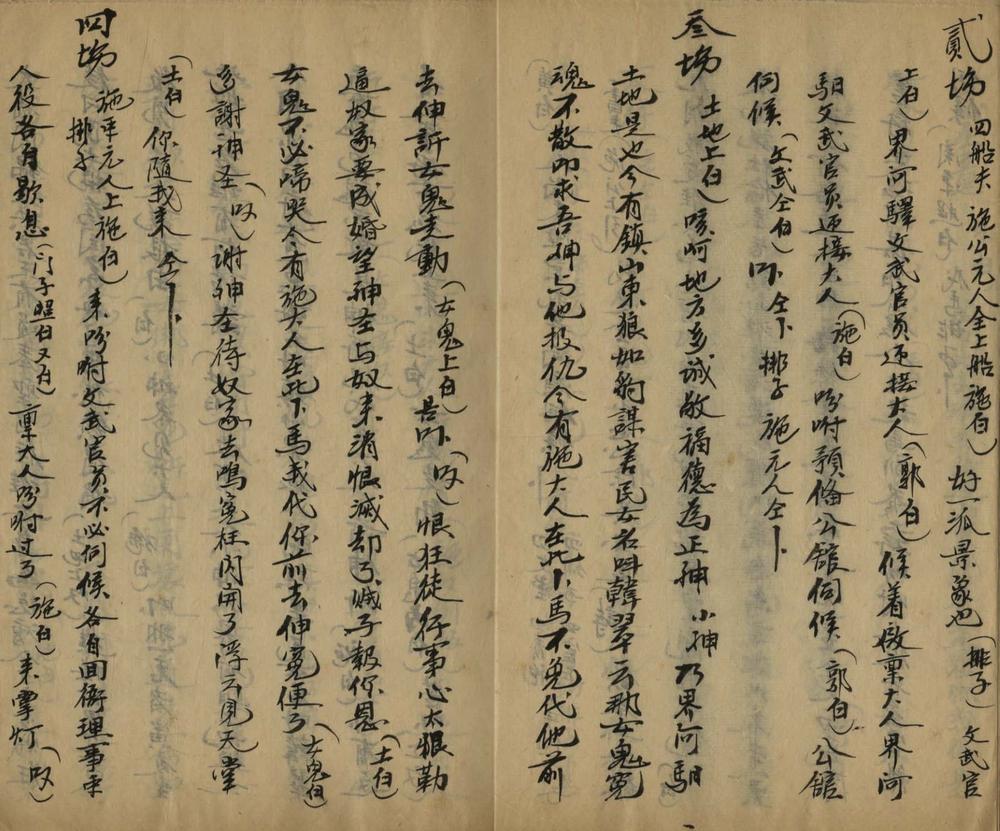 貳場　四船夫　施公元人仝上船施白)　好一派景象也　(排子)　文武官
上白)　界河驛文武官員迎接大人　(郭白)　候着啟禀大人界河
馹文武官員迎接大人　(施白)　吩咐預俻公舘伺候　(郭白)　公舘
伺候　(文武仝白)　吓　仝下　排子　施元人仝下
叁場　土地上白)　咳呵地方多诚敬福德為正神　小神乃界河馹
土地是也今有鎮山東狼如豹謀害民女名呌韓翠云那女鬼冤
魂不散叩求吾神与他报仇今有施大人在此下馬不免代他前
去伸訴女鬼走動　(女鬼上白)　是吓　(叹)　恨狂徒行事心太狠勒
逼奴家要成婚望神圣与奴来消恨滅却了贼子報你恩　(土白)
女鬼不必啼哭今有施大人在此下馬我代你前去伸冤便了　(女鬼白)
多謝神圣　(叹)　谢神圣待奴家去鳴冤枉闪開了浮云見天堂
(土白)　你随我来　仝下
四場　施平元人上施白)　来吩咐文武官員不必伺候各自回衙理事手
排子
人役各自歇息　(门子照白又白)　禀大人吩咐过了　(施白)　来掌灯　(叹)